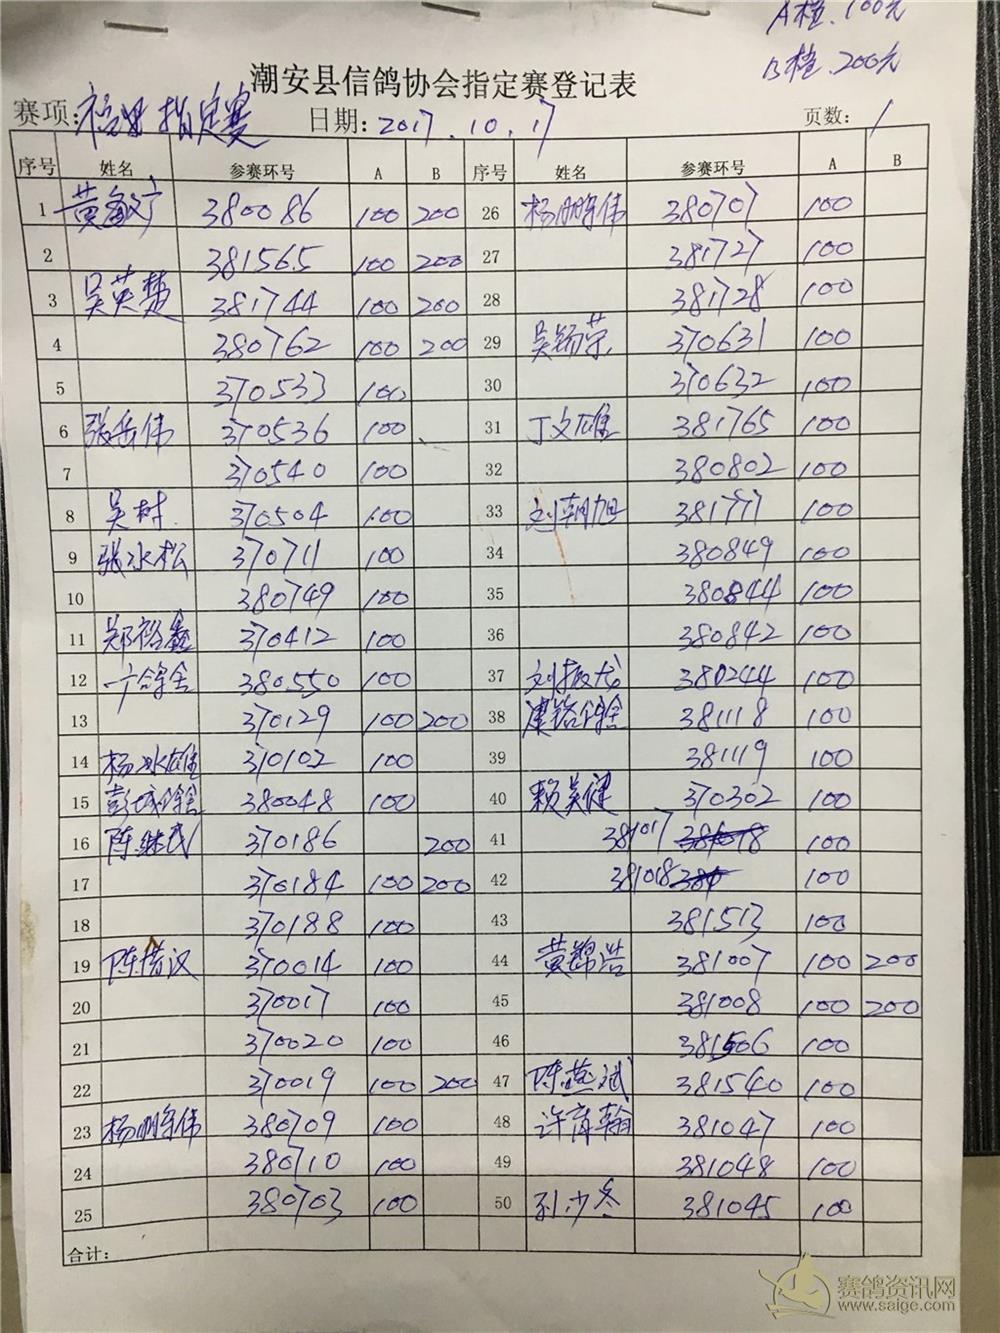 A档.100元
B档.200元
潮安县信鸽协会指定赛登记表
赛项: 指定赛 日期: 2017.10.17 页数: 1
序号 姓名 参赛环号 A B 序号 姓名 参赛环号 A B
1 黄 380086 100 200 26 杨 伟 380707 100
2 381565 100 200 27 381727 100
3 吴英楚 381744 100 200 28 381728 100
4 380762 100 200 29 吴锡荣 370631 100
5 370533 100 30 370632 100
6 张岳伟 370536 100 31 丁文雄 381765 100
7 370540 100 32 380802 100
8 吴树 370504 100 33 刘朝旭 381771 100
9 张水松 370711 100 34 380849 100
10 380749 100 35 380844 100
11 郑裕鑫 370412 100 36 380842 100
12 鸽舍 380550 100 37 刘振龙 380244 100
13 370129 100 200 38 建铭鸽舍 381118 100
14 杨冰雄 370102 100 39 381119 100
15 彭城鸽舍 380048 100 40 赖英健 370302 100
16 陈继民 370186 200 41 381017 100
17 370184 100 200 42 381018 100
18 370188 100 43 381513 100
19 陈 汉 370014 100 44 黄锦浩 381007 100 200
20 370017 100 45 381008 100 200
21 370020 100 46 381506 100
22 370019 100 200 47 陈 斌 381540 100
23 杨 伟 380709 100 48 许育翰 381047 100
24 380710 100 49 381048 100
25 380703 100 50 孙少冬 381045 100
合计:
赛鸽资讯网
www.saige.com